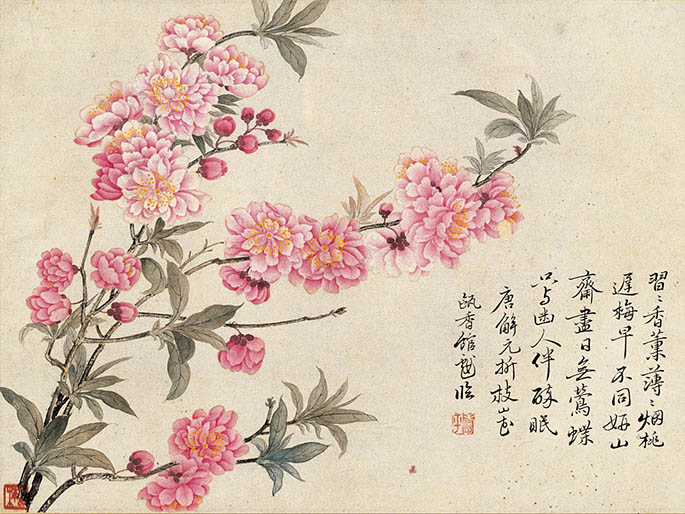 習〻香薰薄〻烟桃
遲梅早不同妍山
齋盡日無鶯蝶
只与幽人伴醉眠
唐解元折枝山花
甌香館臨